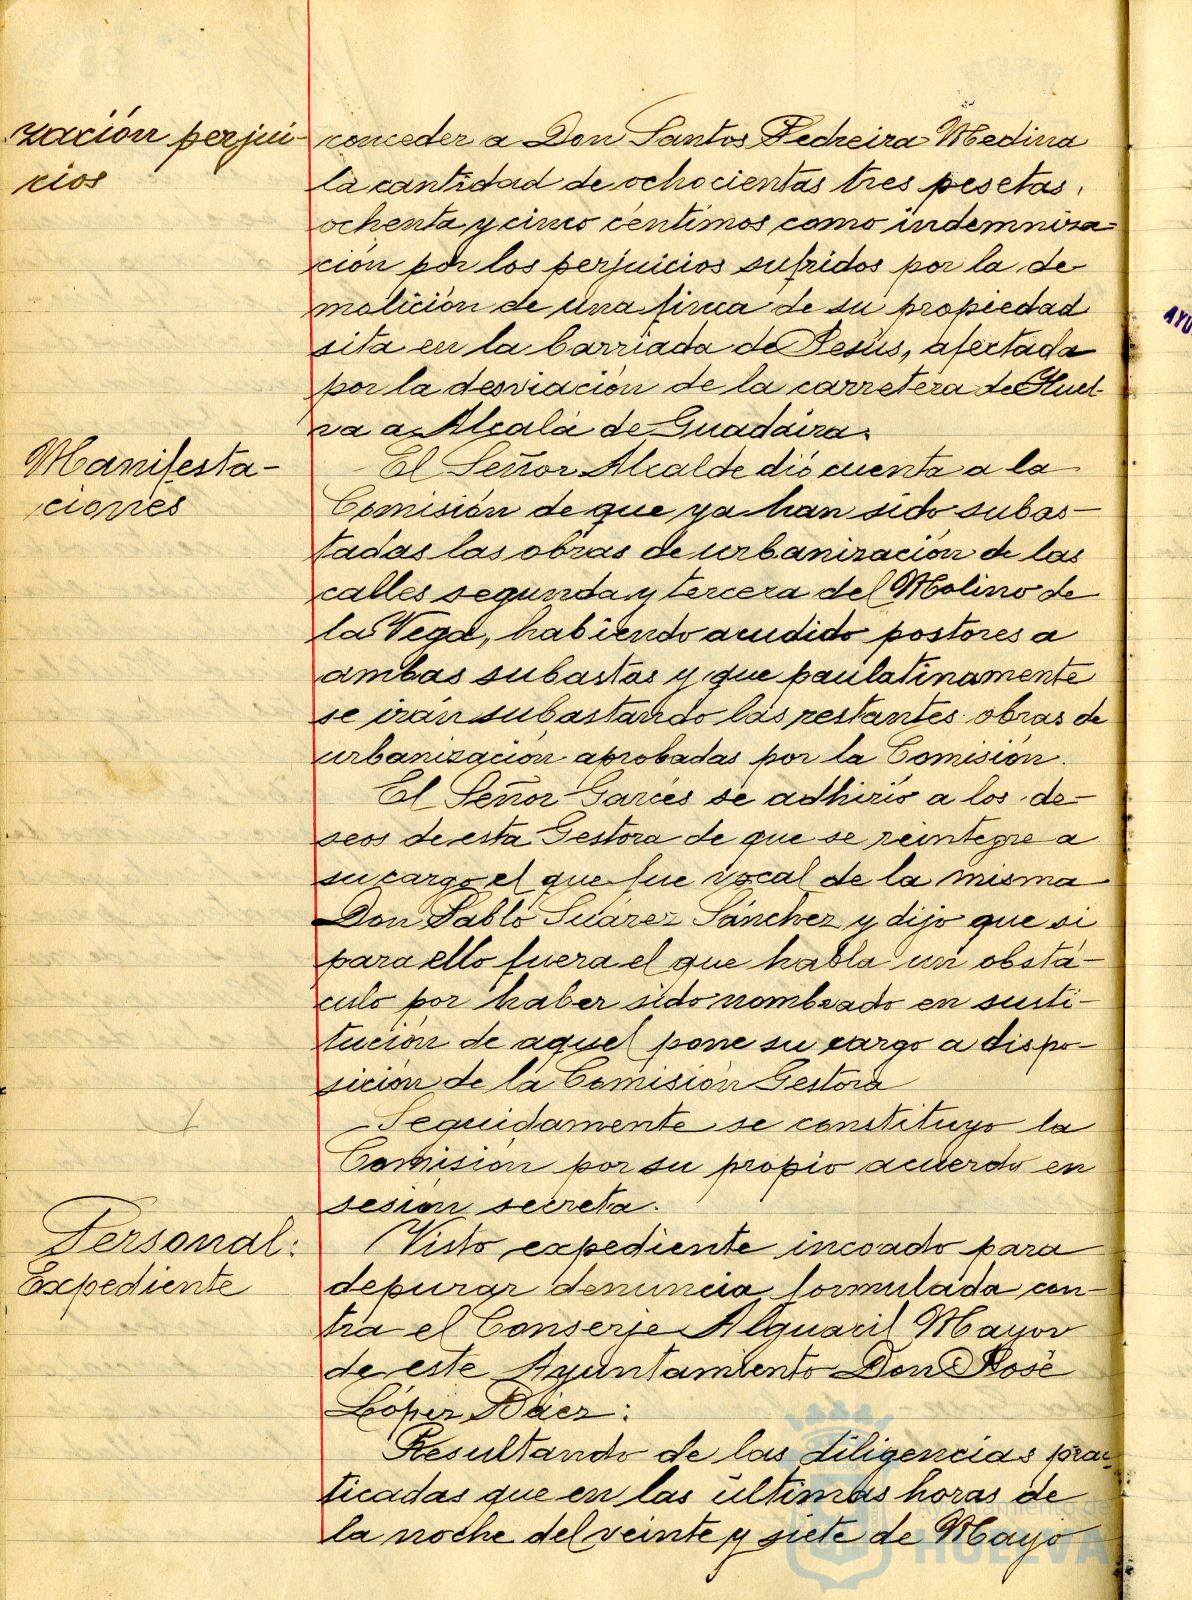 zación perjui-
cios
conceder a Don Santos Pedreira Medina
la cantidad de ochocientas tres pesetas,
ochenta y cinco centimos como indemniza-
ción por los perjuicios sufridos por la de-
molición de una finca de su propiedad
sita en la barriada de Jesús, afectada
por la desviación de la carretera de Huel-
va a Alcalá de Guadaira.
Manifesta-
ciones
El Señor Alcalde dió cuenta a la
Comisión de que ya han sido subas-
tadas las obras de urbanización de las
calles segunda y tercera del Molino de
la Vega, habiendo acudido postores a
ambas subastas y que paulatinamente
se irán subastando las restantes obras de
urbanización aprobadas por la Comisión.
El Señor Garcés se adhirió a los de-
seos de esta Gestora de que se reintegre a
su cargo el que fue vocal de la misma
Don Pablo Suárez Sánchez y dijo que si
para ello fuera el que habla un obstá-
culo por haber sido nombrado en susti-
tución de aquel pone su cargo a dispo-
sición de la Comisión Gestora
Seguidamente se constituyo la
Comisión por su propio acuerdo en
sesión secreta.
Personal:
Expediente
Visto expediente incoado para
depurar denuncia formulada con-
tra el Conserje Alguacil Mayor
de este Ayuntamiento Don José
López Báez:
Resultando de las diligencias prac-
ticadas que en las últimas horas de
la noche del veinte y siete de Mayo
AYU
Ayuntamiento de
HUELVA